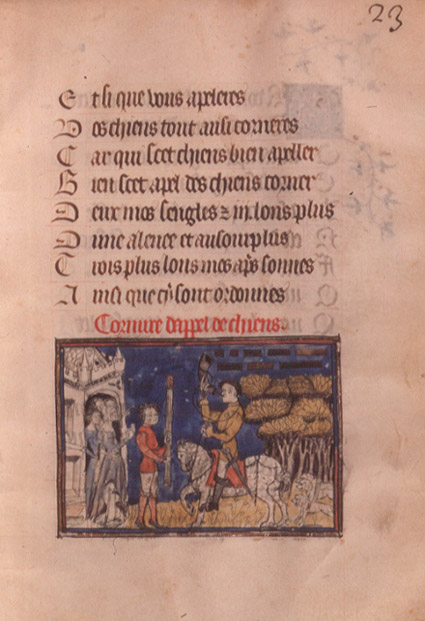 23
Et si que vous apeleres
Vos chiens tout ausi corneres
Car qui scet chiens bien apeller
Bien scet apel des chiens corner
Deux mos sengles z .iii. lons plus
Dune alence et au sourplus
Trois plus lons mos aps sonnes
Ainsi que cy sont ordonnes
Cornure dappel de chiens.